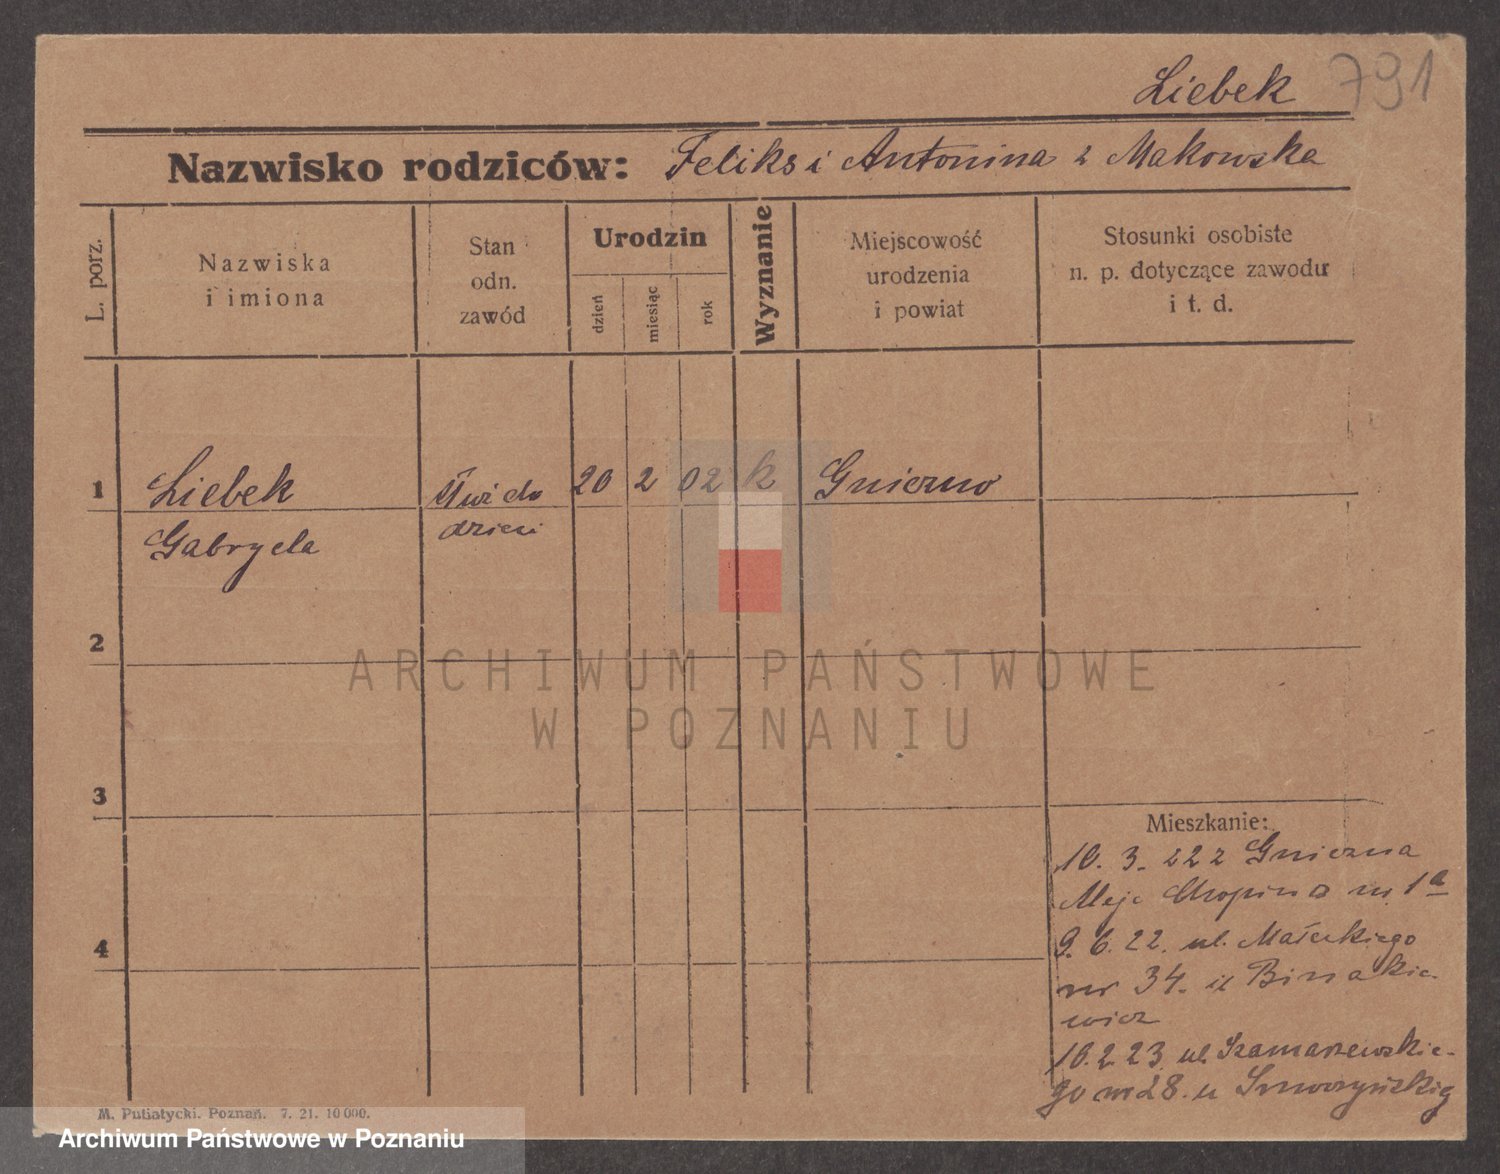 Liebek 791
Nazwisko rodziców: Feliks i Antonina z Makowska
L. porz.
Nazwiska
i imiona
Stan
odn.
zawód
Urodzin
dzień
miesiąc
rok
Wyznanie
Miejscowość
urodzenia
i powiat
Stosunki osobiste
n. p. dotyczące zawodu
i t. d.
1 Liebek 20 2 02 k Gniezno
Gabryela dzieci
2
ARCHIWUM PAŃSTWOWE
W POZNANIU
3
Mieszkanie:
10. 3. 22 z Gniezna
m 1a
4
9. 6. 22. ul. Małeckiego
nr 34.
wicz
10.2.23 ul. Szamarzewskie-
go nr 28. u
M. Putiatycki. Poznań. 7. 21. 10 000.
Archiwum Państwowe w Poznaniu